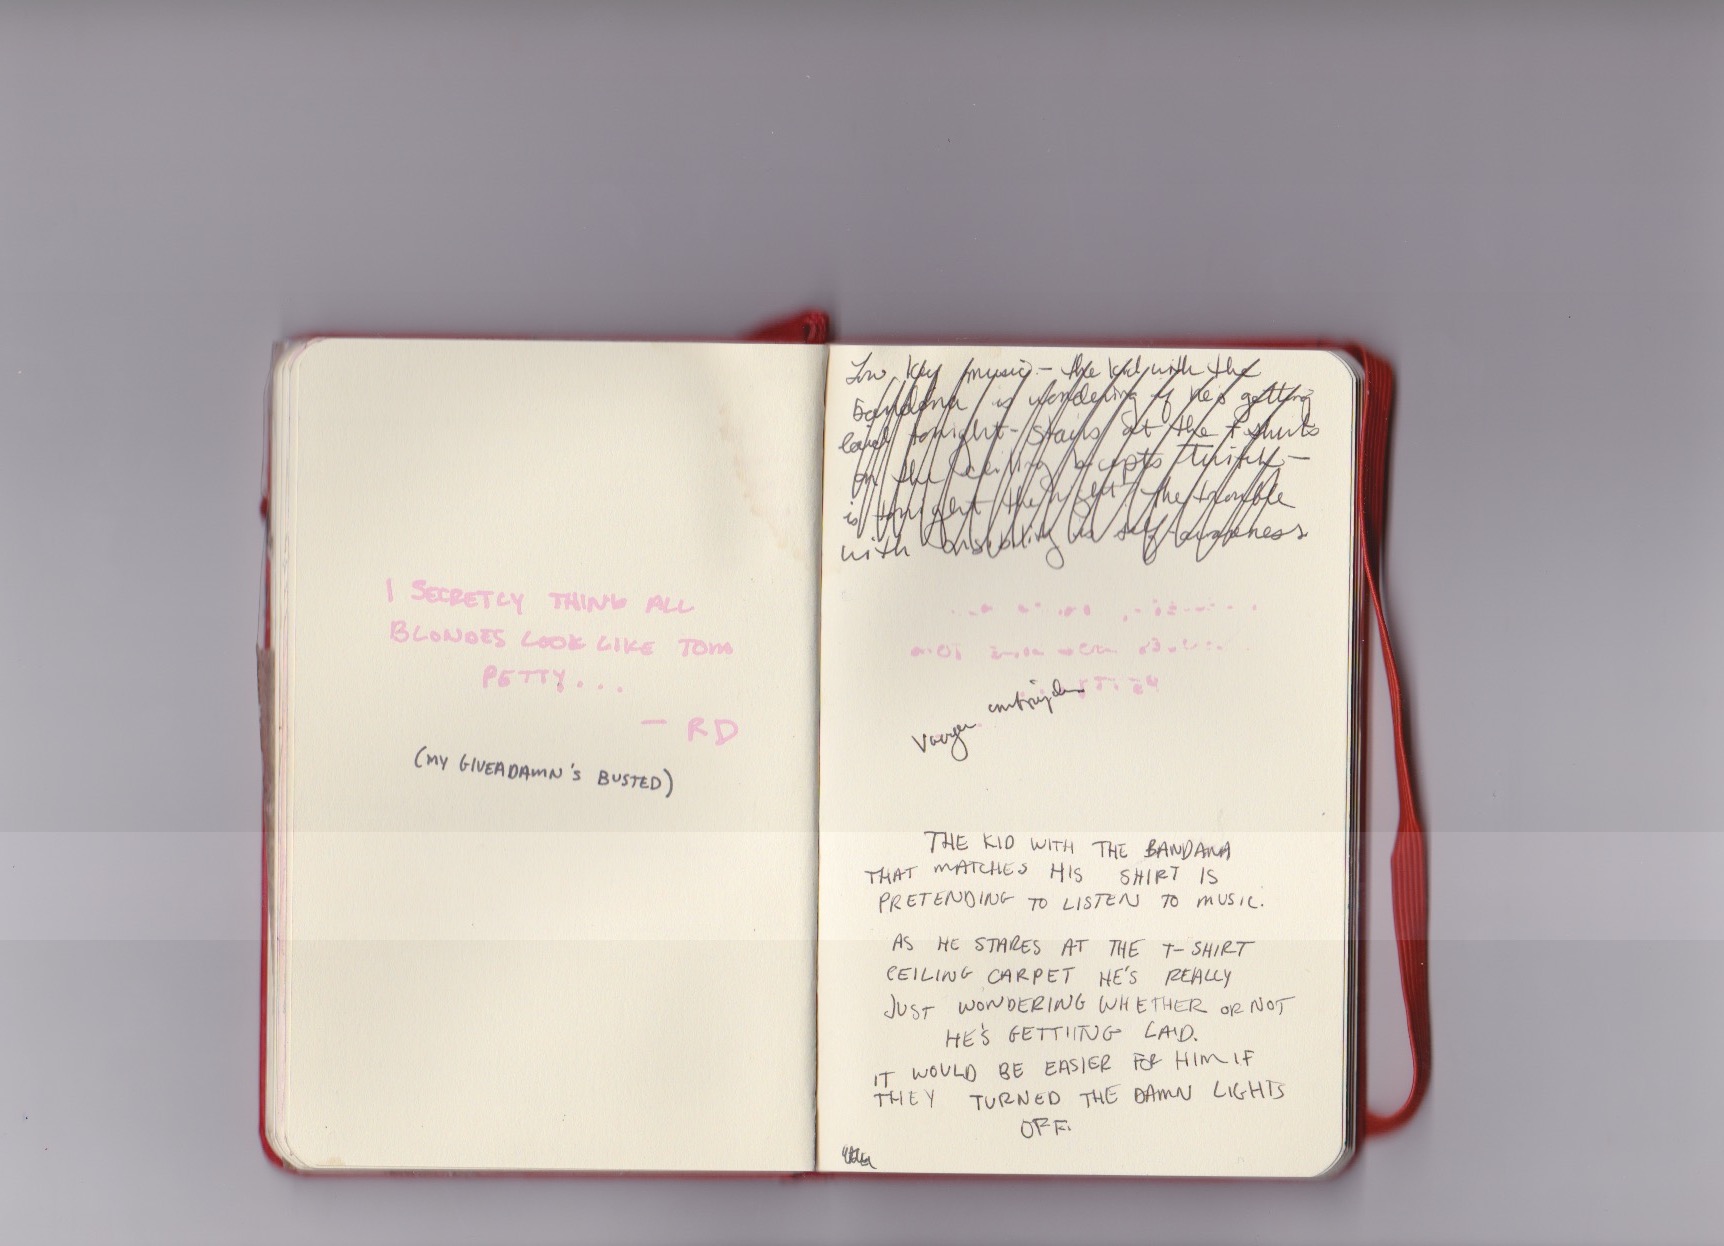 I SECRETLY THINK ALL
BLONDES LOOK LIKE TOM
PETTY...
— RD
(MY GIVEADAMN'S BUSTED)
Low key music - the kid with the
bandana is wondering if he's getting
laid tonight - stairs at the t-shirts
on the ceiling
is tonight the night the trouble
with is self-awareness
THE KID WITH THE BANDANA
THAT MATCHES HIS SHIRT IS
PRETENDING TO LISTEN TO MUSIC.
AS HE STARES AT THE T-SHIRT
CEILING CARPET HE'S REALLY
JUST WONDERING WHETHER OR NOT
HE'S GETTIING LAID.
IT WOULD BE EASIER FOR HIM IF
THEY TURNED THE DAMN LIGHTS
OFF.